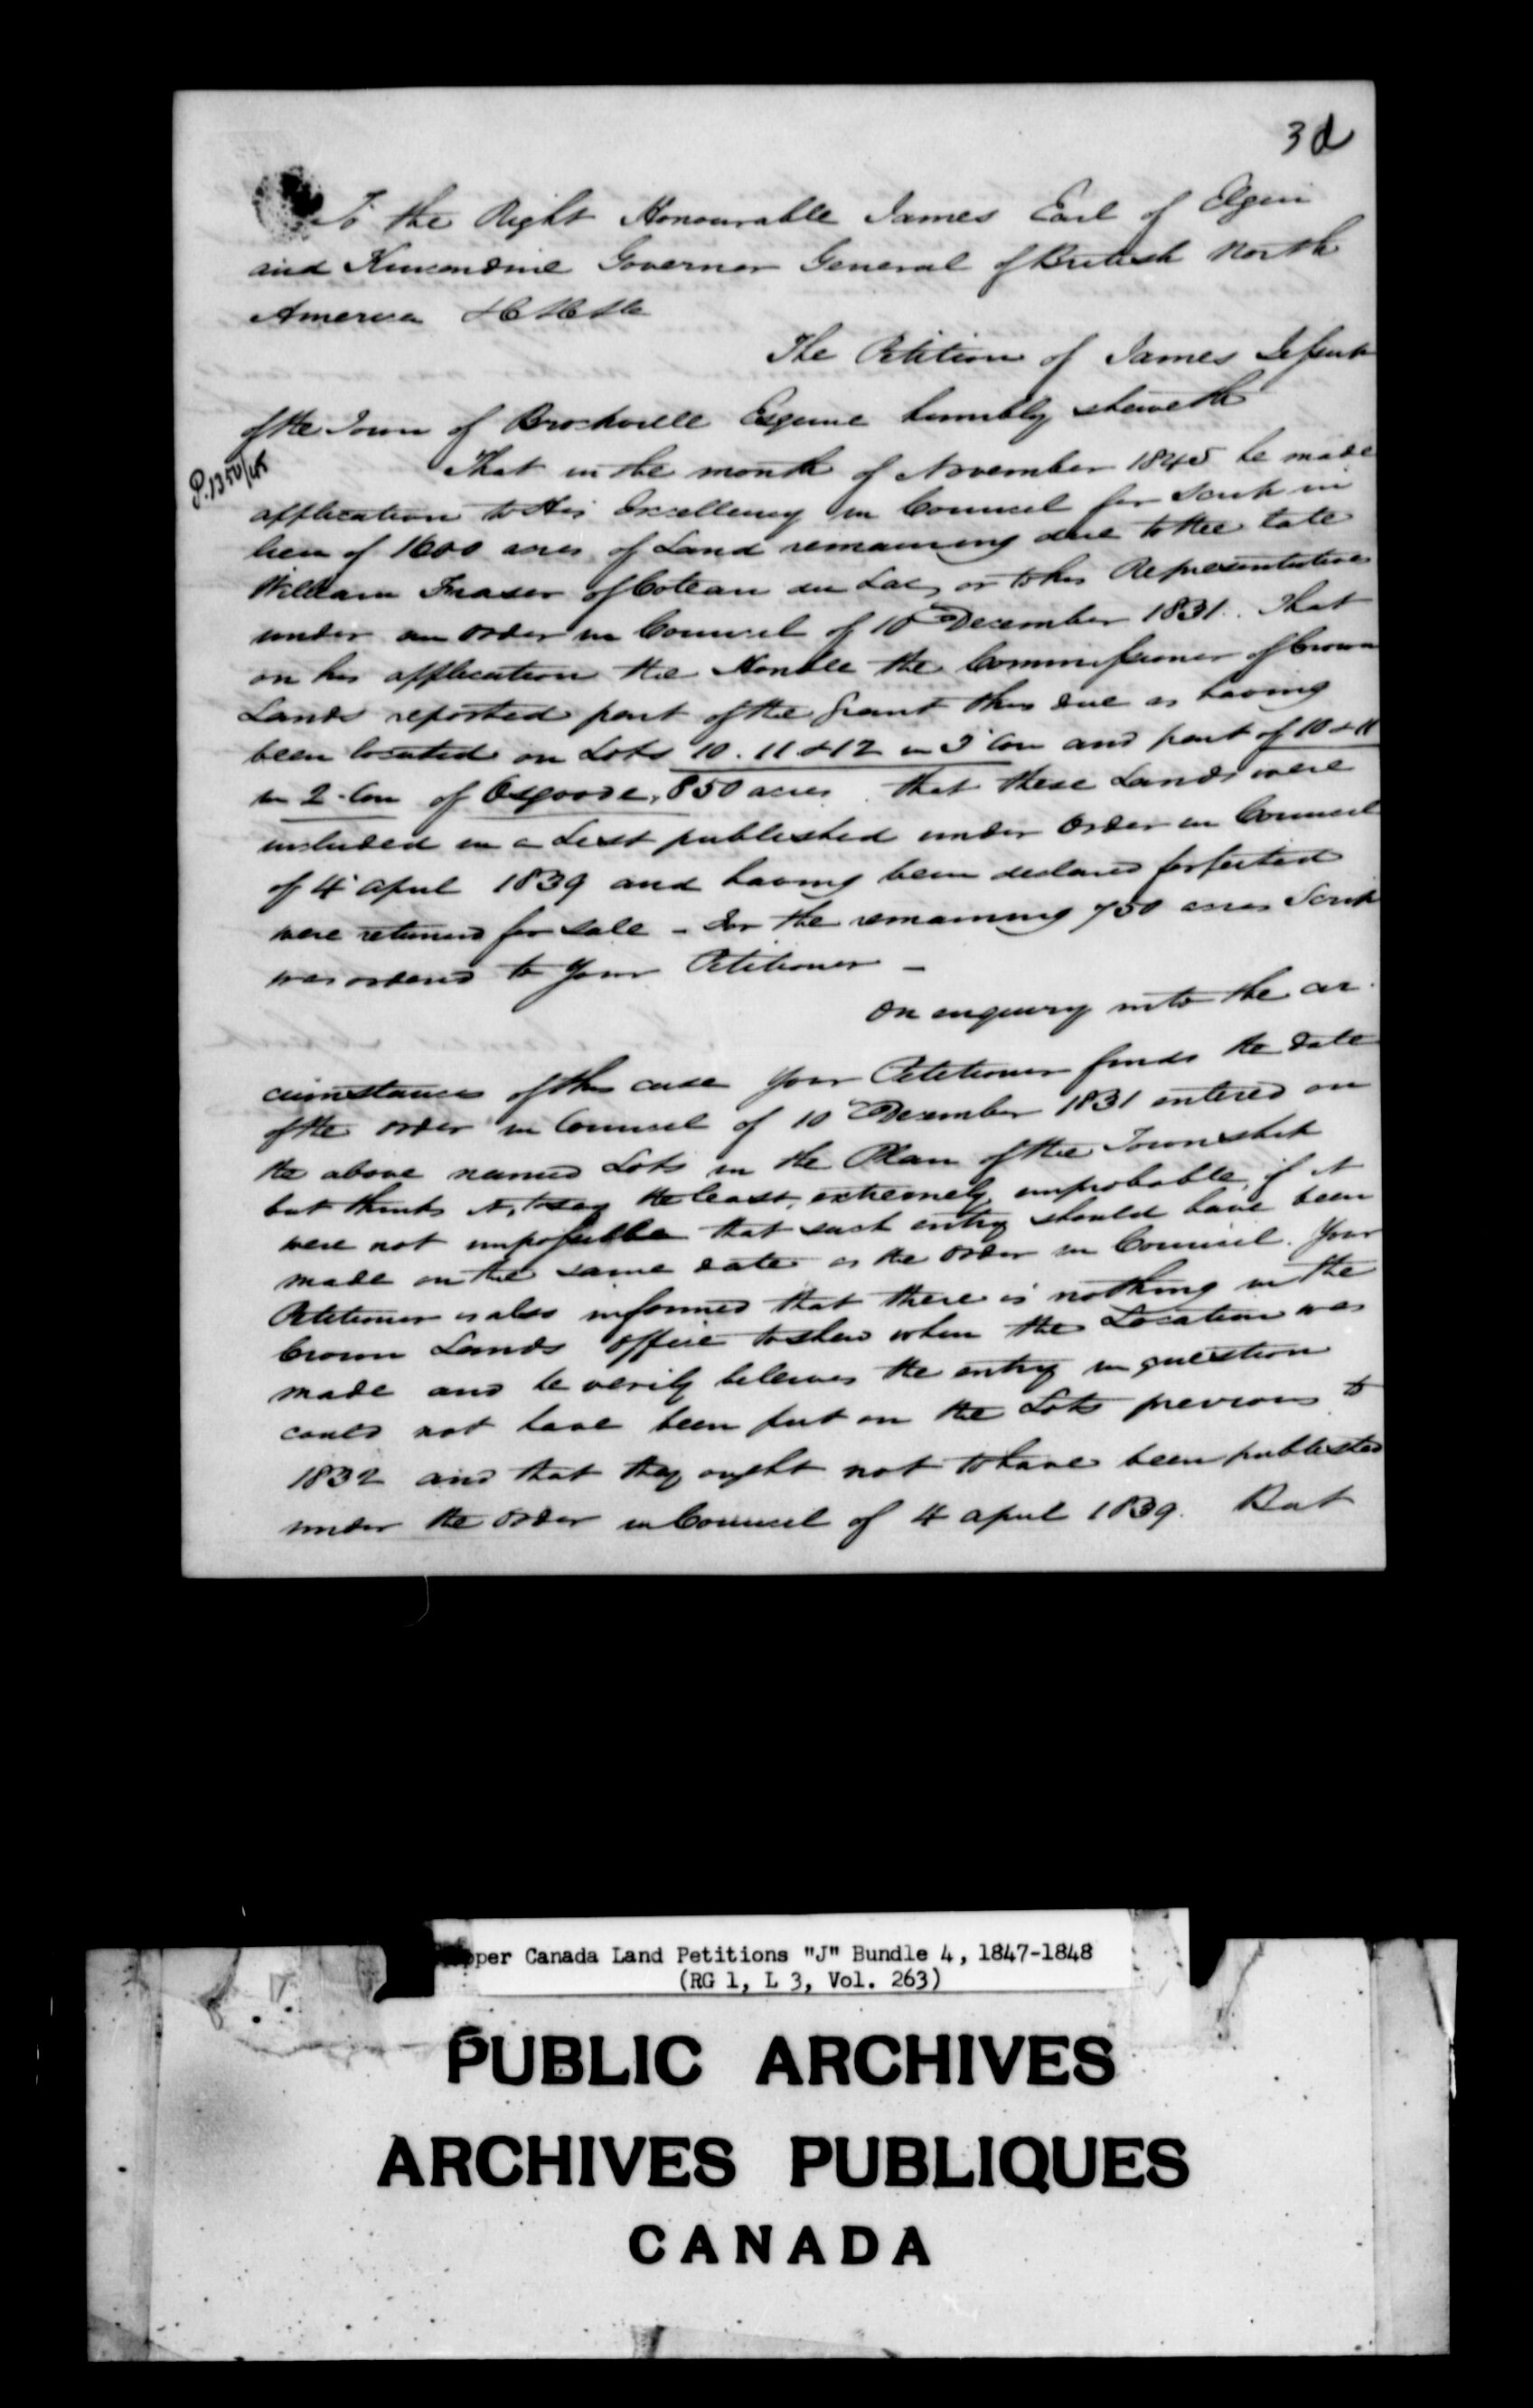 3d
To the Right Honourable James Earl of Elgin
and Kincardine Governor General of British North
America &c &c &c
The Petition of James Jessup
of the Town of Brockville Esquire humbly sheweth
P. 1350/45
That in the month of November 1845 he made
application to His Excellency in Council for Scrip in
lieu of 1600 acres of Land remaining due to the late
William Fraser of Coteau du Lac, or to his Representative
under an order in Council of 10 December 1831. That
on his application the Honble the Commissioner of Crown
Lands reported part of the Grant thus due as having
been located on Lots 10. 11 & 12 in 5 Con and part of 10 & 11
in 2 Con of Osgoode, 850 acres. that these Lands were
included in a List published under Order in Council
of 4 April 1839 and having been declared forfeited
were returned for sale - For the remaining 750 acres Scrip
was ordered to Your Petitioner -
On enquiry into the cir-
cumstances of this case Your Petitioner finds the date
of the order in Council of 10 December 1831 entered on
the above named Lots in the Plan of the Township
but thinks it, to say the least, extremely improbable, if it
were not impossible that such entry should have been
made on the same date as the order in Council. Your
Petitioner is also informed that there is nothing in the
Crown Lands Office to shew when the Location was
made and he verily believes the entry in question
could not have been put on the Lots previous to
1832 and that they ought not to have been published
under the order in Council of 4 April 1839. But
pper Canada Land Petitions "J" Bundle 4, 1847-1848
(RG 1, L 3, Vol. 263)
PUBLIC ARCHIVES
ARCHIVES PUBLIQUES
CANADA